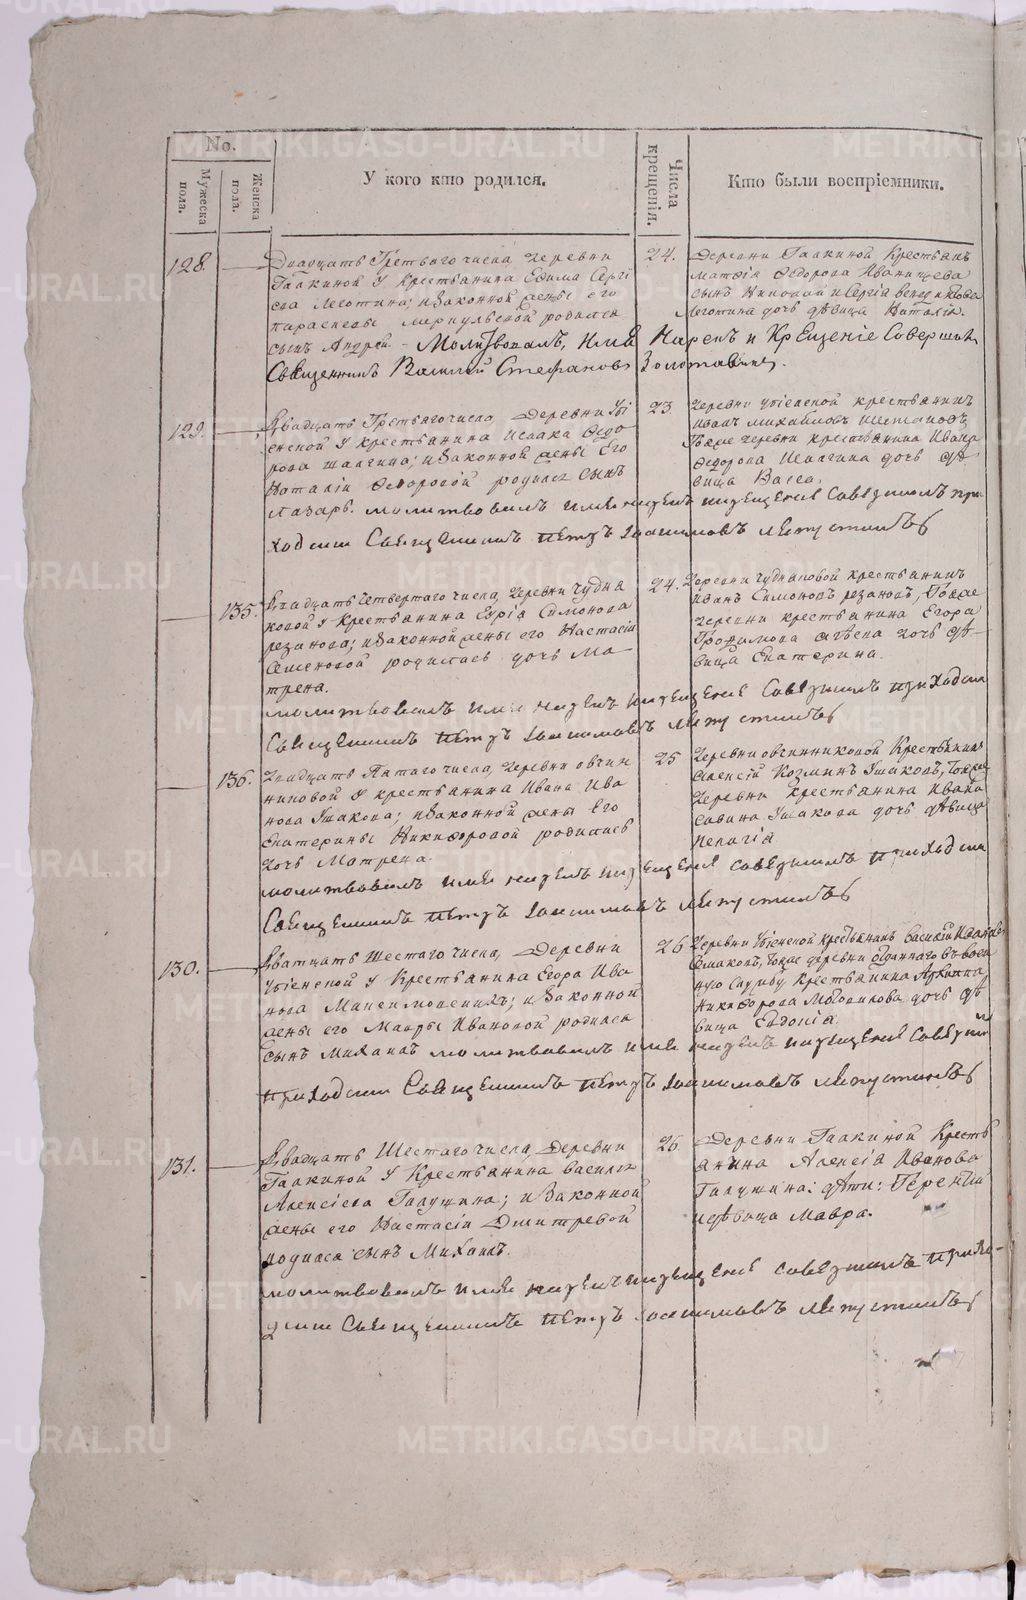 No.
Мужеска пола.
Женска пола.
У кого кто родился.
Числа крещенія.
Кто были воспріемники.
128.
Двадцать Третьяго числа деревни
Галкиной у крестьянина Ефима Сергі
ева Леготина; и законной жены его
параскевы родился
сынъ Андрей - Молитвовалъ, Имя Нарекъ и Крещеніе Совершилъ
Священникъ Василій Стефановъ Золотавинъ.
24.
деревни Галкиной Крестьян
матвія Федорова Иванищева
сынъ Николай и Сергія
Леготина дочь дѣвица Наталія.
129.
Двадцать Третьяго числа, Деревни
у крестьянина Исаака Федо
рова шалгина; и законной жены Его
Наталіи Федоровой родился сынъ
Лазарь. молитвовалъ имя нарекъ и крещеніе совершилъ при
ходскій Священникъ Петръ
23.
деревни крестьянинъ
Иванъ михайловъ
Тояже деревни крестьянина Ивана
Федорова Шалгина дочь дѣ
вица Васса.
135.
Двадцать Четвертаго числа, деревни Чудна
ковой у крестьянина Симонова
резанова; и законной жены его Настасіи
Семеновой родилась дочь Ма
трена.
молитвовалъ имя нарекъ и крещеніе совершилъ приходскій
Священникъ Петръ
24.
деревни Чуднаковой крестьянинъ
Иванъ Симоновъ резановъ, Тояже
деревни крестьянина Егора
Трофимова дочь дѣ
вица Екатерина.
136.
Двадцать Пятаго числа, деревни овчин
никовой у крестьянина Ивана Ива
нова Ушакова; и законной жены Его
Екатерины Никифоровой родилась
дочь Матрена.
молитвовалъ имя нарекъ и крещеніе совершилъ приходскій
Священникъ Петръ
25
деревни овчинниковой Крестьянинъ
Алексій Козминъ Ушаковъ, Тояже
деревни крестьянина Ивана
Савина Ушакова дочь дѣвица
Пелагія
130.
Дватцать Шестаго числа, Деревни
у Крестьянина Егора Ива
нова; и законной
жены его Мавры Ивановой родился
сынъ Михаилъ молитвовалъ имя нарекъ и крещеніе совершилъ
приходскій Священникъ Петръ
26
деревни крестьянинъ Василій Иванов
Семаковъ, Тояже деревни отданнаго въ воен
ную Службу Крестьянина Архиппа
Никифорова дочь дѣ
вица Евдокія.
131.
Двадцать Шестаго числа, Деревни
Галкиной у Крестьянина василья
Алексіева Галушина; и законной
жены его Настасіи Дмитревой
родился сынъ Михаилъ.
молитвовалъ имя нарекъ и крещеніе совершилъ прихо-
дскій Священникъ Петръ
26
Деревни Галкиной Кресть
янина Алексія Иванова
Галушина: дѣти: Терентій
и дѣвица Мавра.
METRIKI.GASO-URAL.RU